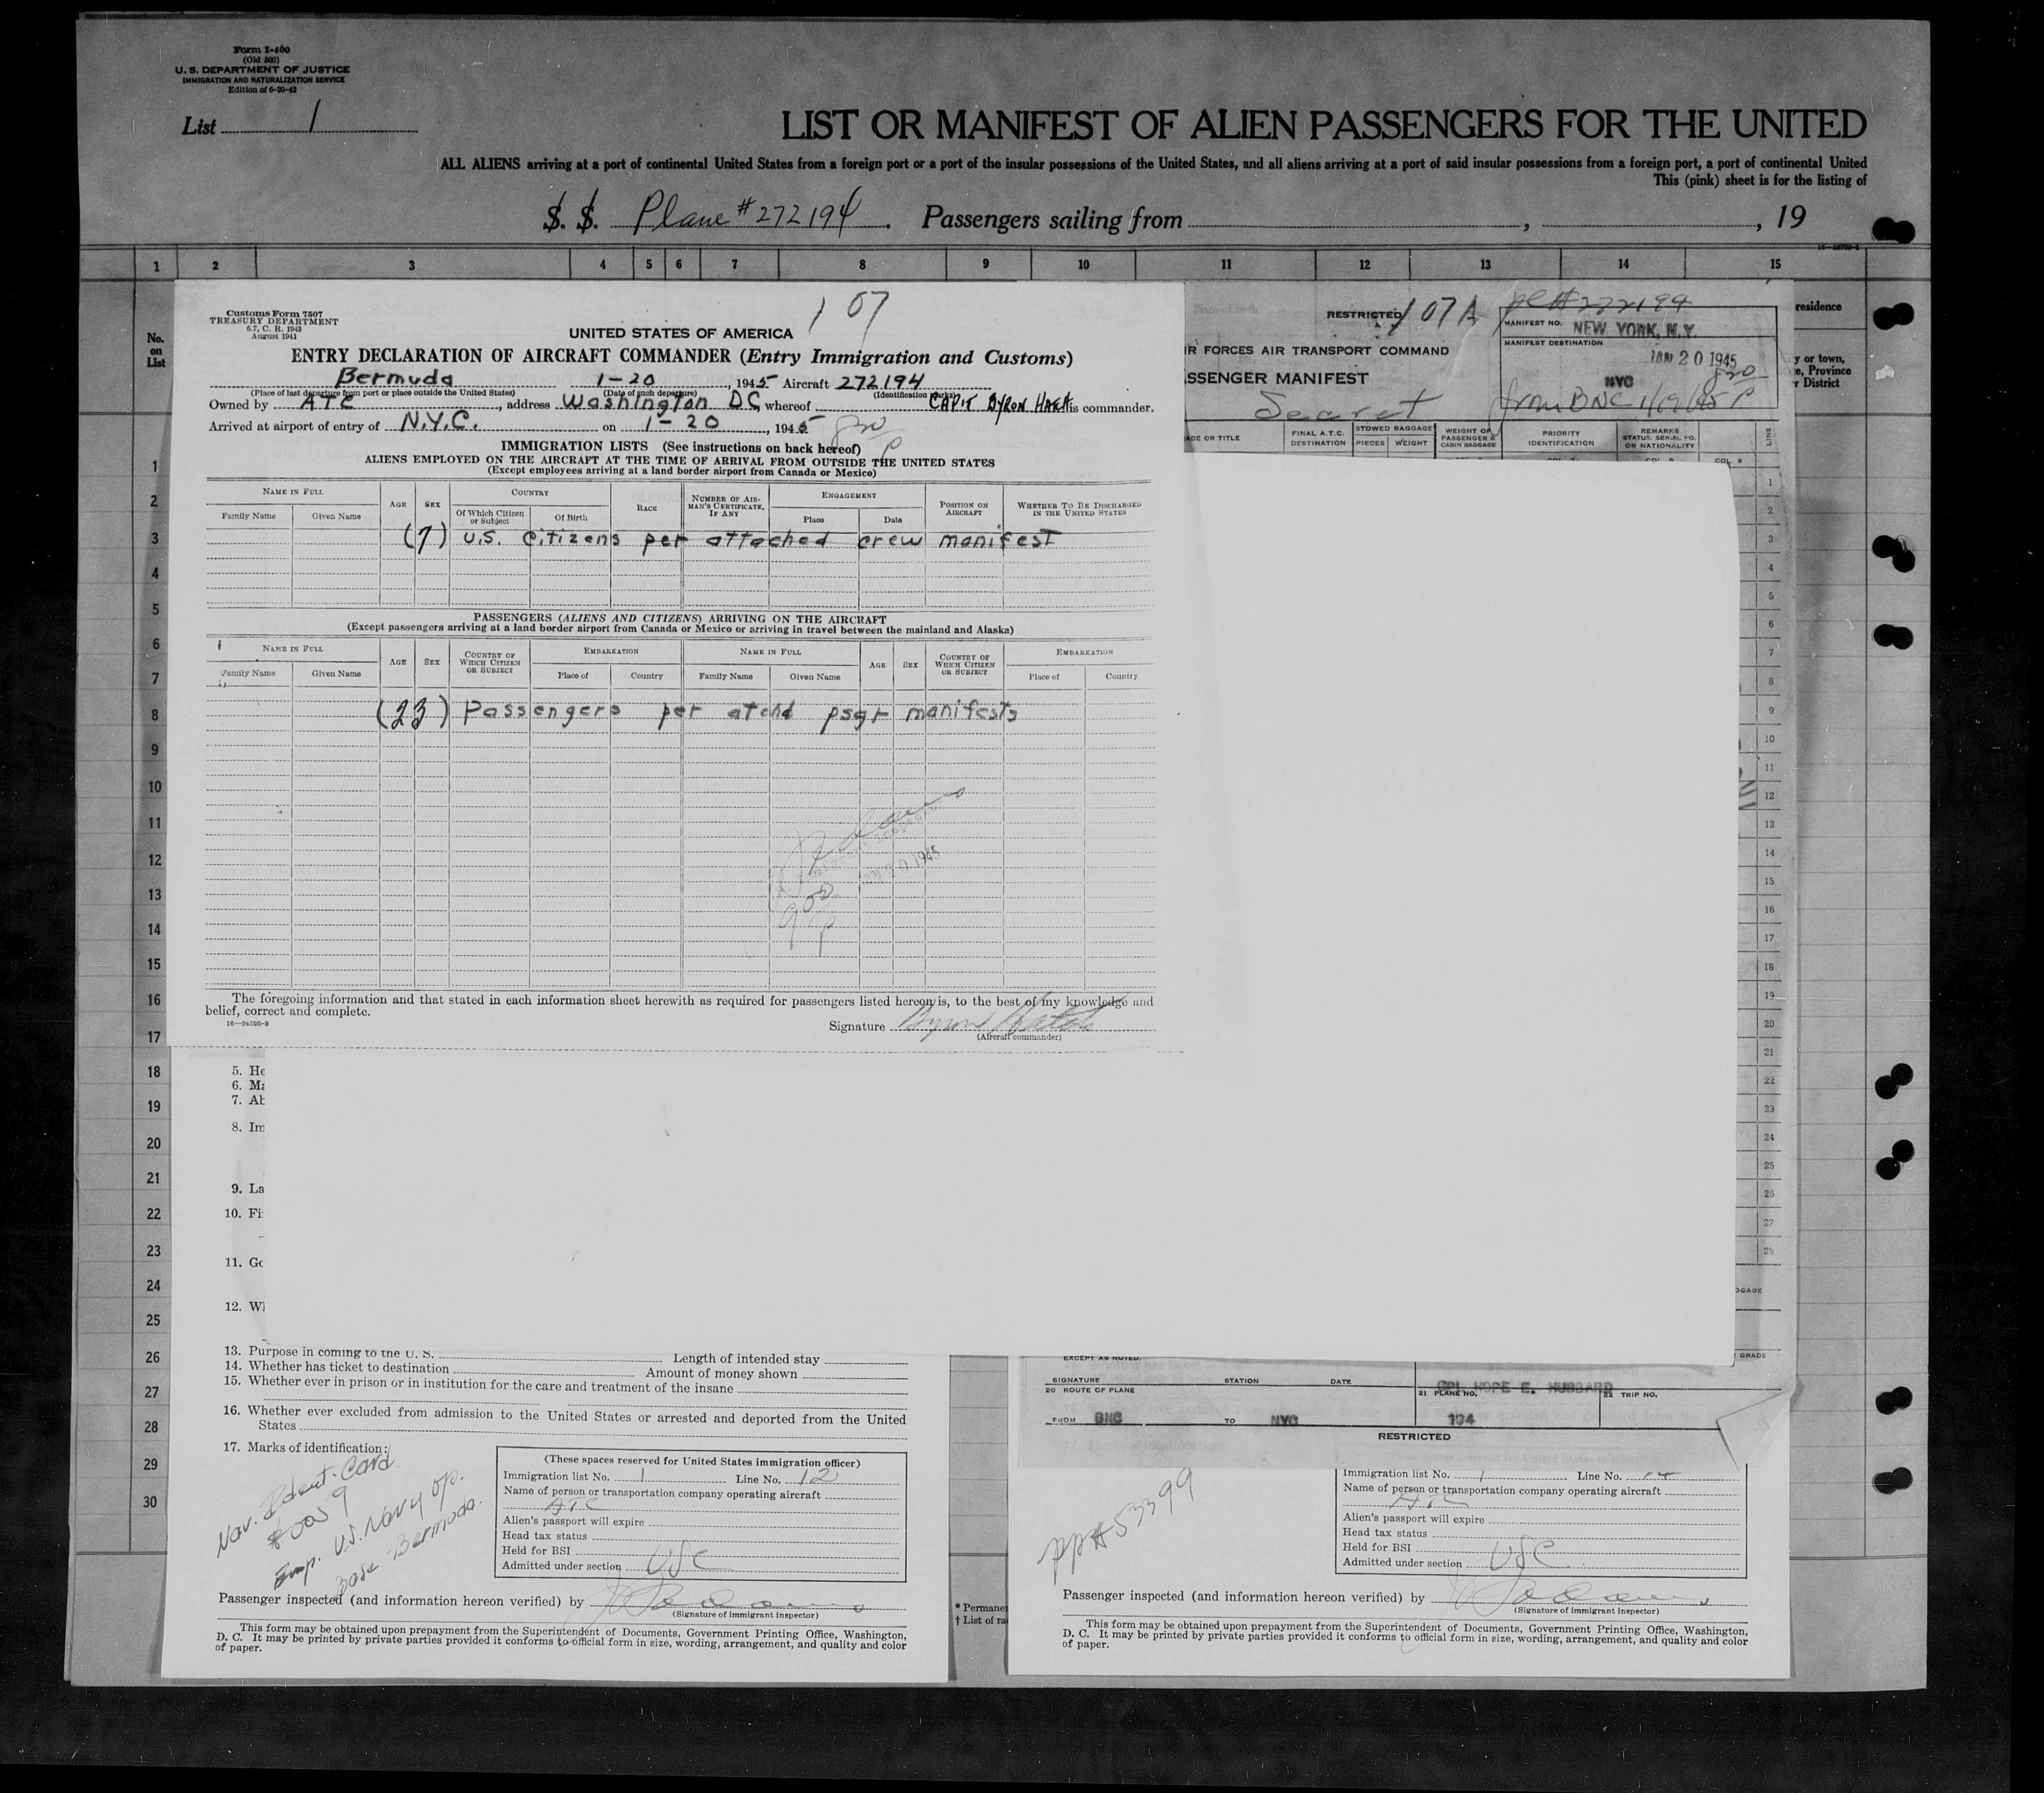 Form I-400
(Old 500)
U. S. DEPARTMENT OF JUSTICE
IMMIGRATION AND NATURALIZATION SERVICE
Edition of 6-20-43
List 1
LIST OR MANIFEST OF ALIEN PASSENGERS FOR THE UNITED
ALL ALIENS arriving at a port of continental United States from a foreign port or a port of the insular possessions of the United States, and all aliens arriving at a port of said insular possessions from a foreign port, a port of continental United
This (pink) sheet is for the listing of
S. S. Plane #272194. Passengers sailing from , , 19
1 2 3 4 5 6 7 8 9 10 11 12 13 14 15
No. on List
residence
y or town,
e, Province
r District
1
2
3
4
5
6
7
8
9
10
11
12
13
14
15
16
17
18
19
20
21
22
23
24
25
26
27
28
29
30
107
Customs Form 7507
TREASURY DEPARTMENT
6.7, C. R. 1943
August 1941
UNITED STATES OF AMERICA
ENTRY DECLARATION OF AIRCRAFT COMMANDER (Entry Immigration and Customs)
Bermuda 1-20, 1945 Aircraft 272194
(Place of last departure from port or place outside the United States) (Date of such departure) (Identification marks)
Owned by ATC, address Washington DC, whereof CAPT BYRON is commander.
Arrived at airport of entry of N.Y.C. on 1-20, 1945
IMMIGRATION LISTS (See instructions on back hereof)
ALIENS EMPLOYED ON THE AIRCRAFT AT THE TIME OF ARRIVAL FROM OUTSIDE THE UNITED STATES
(Except employees arriving at a land border airport from Canada or Mexico)
NAME IN FULL AGE SEX COUNTRY RACE NUMBER OF AIRMAN'S CERTIFICATE, IF ANY ENGAGEMENT POSITION ON AIRCRAFT WHETHER TO BE DISCHARGED IN THE UNITED STATES
Family Name Given Name Of Which Citizen or Subject Of Birth Place Date
(7) U.S. Citizens per attached crew manifest
PASSENGERS (ALIENS AND CITIZENS) ARRIVING ON THE AIRCRAFT
(Except passengers arriving at a land border airport from Canada or Mexico or arriving in travel between the mainland and Alaska)
NAME IN FULL AGE SEX COUNTRY OF WHICH CITIZEN OR SUBJECT EMBARKATION NAME IN FULL AGE SEX COUNTRY OF WHICH CITIZEN OR SUBJECT EMBARKATION
Family Name Given Name Place of Country Family Name Given Name Place of Country
(23) Passengers per atchd psgr manifests
1945
The foregoing information and that stated in each information sheet herewith as required for passengers listed hereon is, to the best of my knowledge and
belief, correct and complete.
16—24595-3
Signature Byron
(Aircraft commander)
RESTRICTED 107A
pl #272194
MANIFEST NO. NEW YORK, N.Y.
MANIFEST DESTINATION
JAN 20 1945
NYC
from BNC 1/19/45
R FORCES AIR TRANSPORT COMMAND
SSENGER MANIFEST
Secret
ADE OR TITLE FINAL A.T.C. DESTINATION STOWED BAGGAGE PIECES WEIGHT WEIGHT OF PASSENGER & CABIN BAGGAGE PRIORITY IDENTIFICATION REMARKS STATUS, SERIAL NO. OR NATIONALITY LINE
1
2
3
4
5
6
7
8
9
10
11
12
13
14
15
16
17
18
19
20
21
22
23
24
25
26
27
GGAGE
GRADE
EXCEPT AS NOTED.
SIGNATURE STATION DATE
CPL HOPE E. HUBBARD
20 ROUTE OF PLANE 21 PLANE NO. 22 TRIP NO.
FROM BNC TO NYC 194
RESTRICTED
5. He
6. Ma
7. Ab
8. Im
9. La
10. Fi
11. Go
12. W
13. Purpose in coming to the U. S. Length of intended stay
14. Whether has ticket to destination Amount of money shown
15. Whether ever in prison or in institution for the care and treatment of the insane
16. Whether ever excluded from admission to the United States or arrested and deported from the United
States
17. Marks of identification:
Nav. Ident. Card
Emp. U.S. Navy Op.
Base - Bermuda.
(These spaces reserved for United States immigration officer)
Immigration list No. 1 Line No. 12
Name of person or transportation company operating aircraft
ATC
Alien's passport will expire
Head tax status
Held for BSI
Admitted under section USC
Passenger inspected (and information hereon verified) by
(Signature of immigrant inspector)
This form may be obtained upon prepayment from the Superintendent of Documents, Government Printing Office, Washington,
D. C. It may be printed by private parties provided it conforms to official form in size, wording, arrangement, and quality and color
of paper.
* Permane
† List of ra
PP# 53399
Immigration list No. 1 Line No. 14
Name of person or transportation company operating aircraft
ATC
Alien's passport will expire
Head tax status
Held for BSI
Admitted under section USC
Passenger inspected (and information hereon verified) by
(Signature of immigrant inspector)
This form may be obtained upon prepayment from the Superintendent of Documents, Government Printing Office, Washington,
D. C. It may be printed by private parties provided it conforms to official form in size, wording, arrangement, and quality and color
of paper.